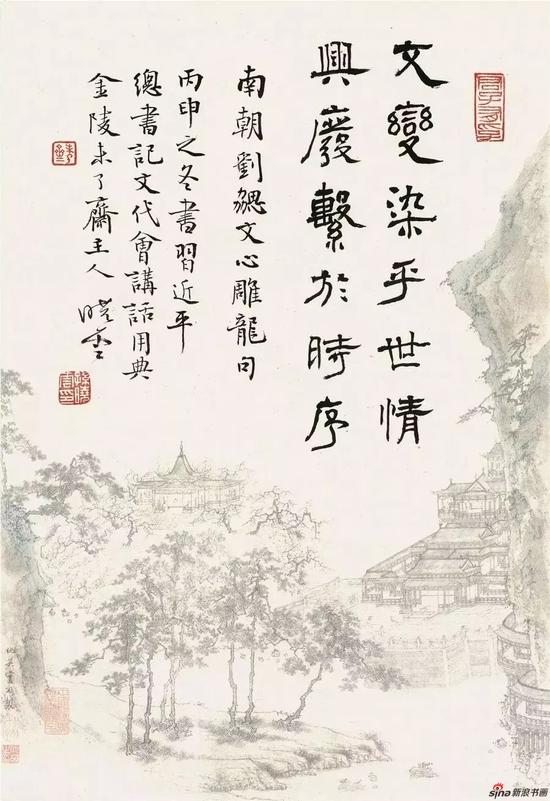 文變染乎世情
興廢繫於時序
南朝劉勰文心雕龍句
丙申之冬書習近平
總書記文代會講話用典
金陵未了齋主人曉雲
sina新浪书画